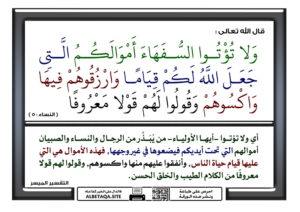 قال الله تعالى :
وَلَا تُؤْتُوا السُّفَهَاءَ أَمْوَالَكُمُ الَّتِي
جَعَلَ اللَّهُ لَكُمْ قِيَامًا وَارْزُقُوهُمْ فِيهَا
وَاكْسُوهُمْ وَقُولُوا لَهُمْ قَوْلًا مَعْرُوفًا
( النساء : ٥ )
أي ولا تؤتوا -أيها الأولياء- من يُبَذِّر من الرجال والنساء والصبيان
أموالهم التي تحت أيديكم فيضعوها في غير وجهها، فهذه الأموال هي التي
عليها قيام حياة الناس، وأنفقوا عليهم منها واكسوهم، وقولوا لهم قولا
معروفًا من الكلام الطيب والخلق الحسن.
التفسير الميسر
احرص على طباعة
ونشر هذه البطاقة
ALBETAQA.SITE